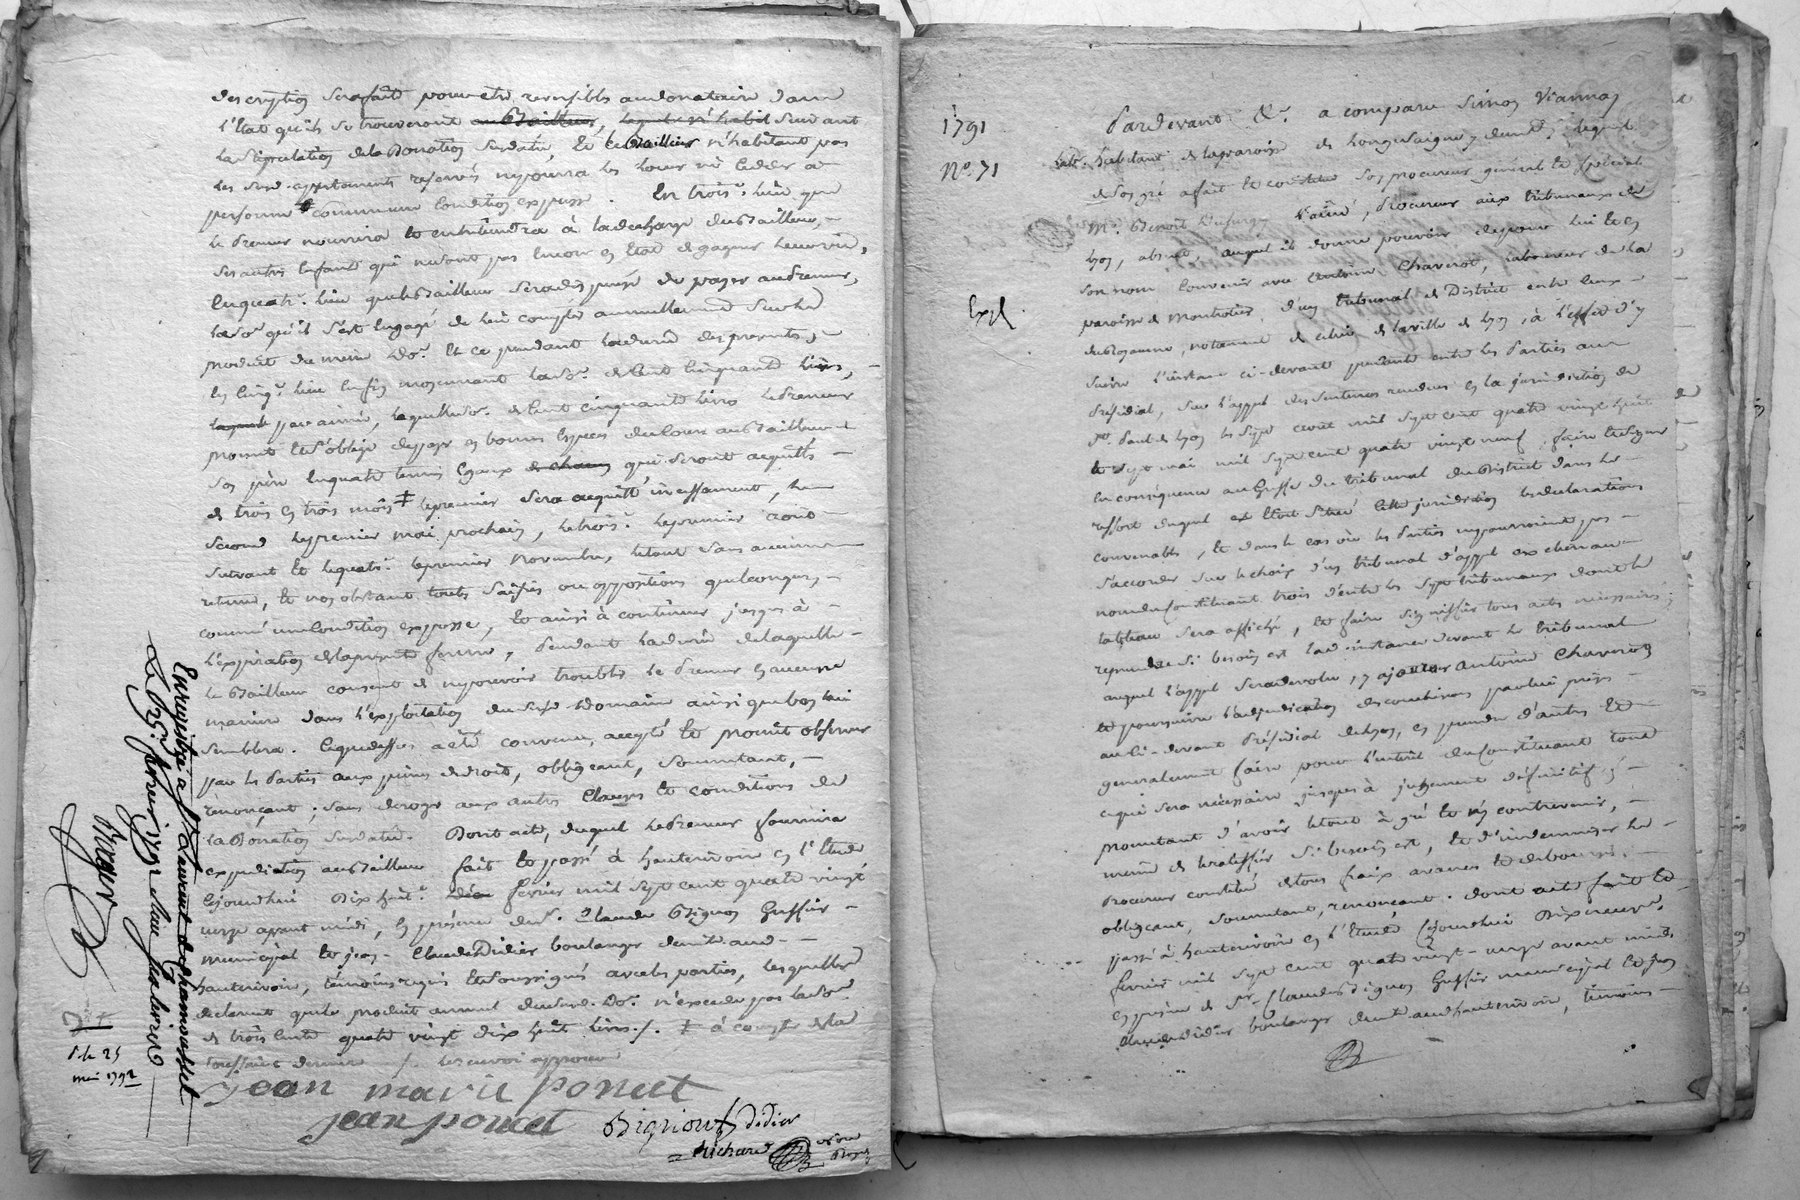 description sera faite pour être remisible au donataire dans
l'Etat qu'ils se trouveront suivant
la stipulation de la Donation susdatée, Et le Bailleur n'habitant pas
les susd. appartements reservés ne pourra les louer ni ceder à
personne comme une Condition expresse. En trois.e lieu que
le Preneur nourrira et entretiendra à la decharge du Bailleur,
ses autres Enfants qui ne sont pas Encore en Etat de gagner leur vie,
En quatr.e lieu que le Bailleur sera dispensé de payer au Preneur,
la so.e qu'il s'est Engagé de lui compter annuellement sur le
produit du meme Do.e Et ce pendant la durée des presentes,
En cinq.e lieu Enfin moyennant la so.e de Cent Cinquante livres,
par année, laquelle so.e de Cent cinquante livres le Preneur
promet et s'oblige de payer en bonnes Especes de Cours au Bailleur
son pere En quatre termes Egaux qui seront acquittés
de trois en trois mois ‡ le premier sera acquitté incessament, le
second le premier mai prochain, le trois.e le premier aout
suivant Et le quatr.e le premier Novembre, le tout sans aucune
retenue, Et nonobstant toutes saisies ou oppositions quelconques,
comme une Condition expresse, Et ainsi à continuer jusques à
l'expiration de la presente ferme, Pendant la durée de laquelle
le Bailleur consent de ne pouvoir troubler le Preneur En aucune
maniere dans l'exploitation du susd. Domaine ainsi que bon lui
semblera. Ce que dessus a été convenu, accepté Et promis observer
par les Parties aux peines de droit, obligeant, soumettant,
renonçant; sans deroger aux autres Clauses Et conditions de
la Donation susdatée. Dont acte, duquel le Preneur fournira
expedition au Bailleur fait Et passé à hauterivoire En l'Etude
Cejourd'hui Dix huit.e fevrier mil sept cent quatre vingt
onze avant midi, En présence du s.r Claude Bignon Greffier
municipal Et jean-Claude Didier boulanger demt. aud.
hauterivoire, témoins requis Et soussignés avec les parties, lesquelles
declarent que le produit annuel du susd. Do.e n'excede pas la so.e
de trois Cents quatre vingt dix huit livres ./. ‡ à compter de la
Toussaint derniere / le renvoi approuvé
jean marie poncet
jean poncet
Bignon Gr
Didier
Richard
Enregistré à St Laurent de chamousset
Le 25e fevrier 1791
Roger
d. le 25
mai 1792
1791
No. 71
Pardevant &.a a comparu Simon Viannay
habitant de la paroisse de Longesaigne, lequel
de son gré a fait Et constitué son procureur général Et spécial
M.e Benoit Dufurge l'ainé, Procureur aux tribunaux de
Lyon, absent, auquel il donne pouvoir de pour lui Et En
son nom Convenir avec Antoine Chaverot, laboureur de la
Exp.
paroisse de Montrotier, d'un tribunal de District entre Ceux
du Royaume, notament de celui de la ville de Lyon, à l'effet d'y
suivre l'instance ci-devant pendante entre les Parties au
Présidial, sur l'appel des sentences rendues En la jurisdiction de
St. Paul de Lyon les sept avril mil sept cent quatre vingt huit
Et sept mai mil sept cent quatre vingt neuf, faire Et signer
En conséquence au Greffe du tribunal du District dans le
ressort duquel Etoit située Cette jurisdiction les declarations
convenables, Et dans le cas où les Parties ne pourroient pas
s'accorder sur le choix d'un tribunal d'appel exclure au
nom du Constituant trois d'entre les sept tribunaux dont le
tableau sera affiché, Et faire signiffier tous actes nécessaires;
reprendre si besoin est lad. instance devant le tribunal
auquel l'appel sera devolu, y ajourner Antoine Chaverot
Et poursuivre l'adjudication des conclusions par lui prises
au Ci-devant Présidial de Lyon, en prendre d'autres Et
généralement faire pour l'interêt du Constituant tout
ce qui sera nécessaire jusques à jugement définitif;
promettant d'avoir le tout à gré Et n'y contrevenir,
meme de le ratiffier si besoin est, Et d'indemniser le
Procureur constitué de tous frais avances Et debourses,
obligeant, soumettant, renonçant. dont acte fait Et
passé à hauterivoire En l'Etude Cejourd'hui Dix neuf
fevrier mil sept cent quatre vingt-onze avant midi,
En présence de Sr. Claude Bignon Greffier municipal Et jean
Claude Didier boulanger demt. aud. hauterivoire, témoins